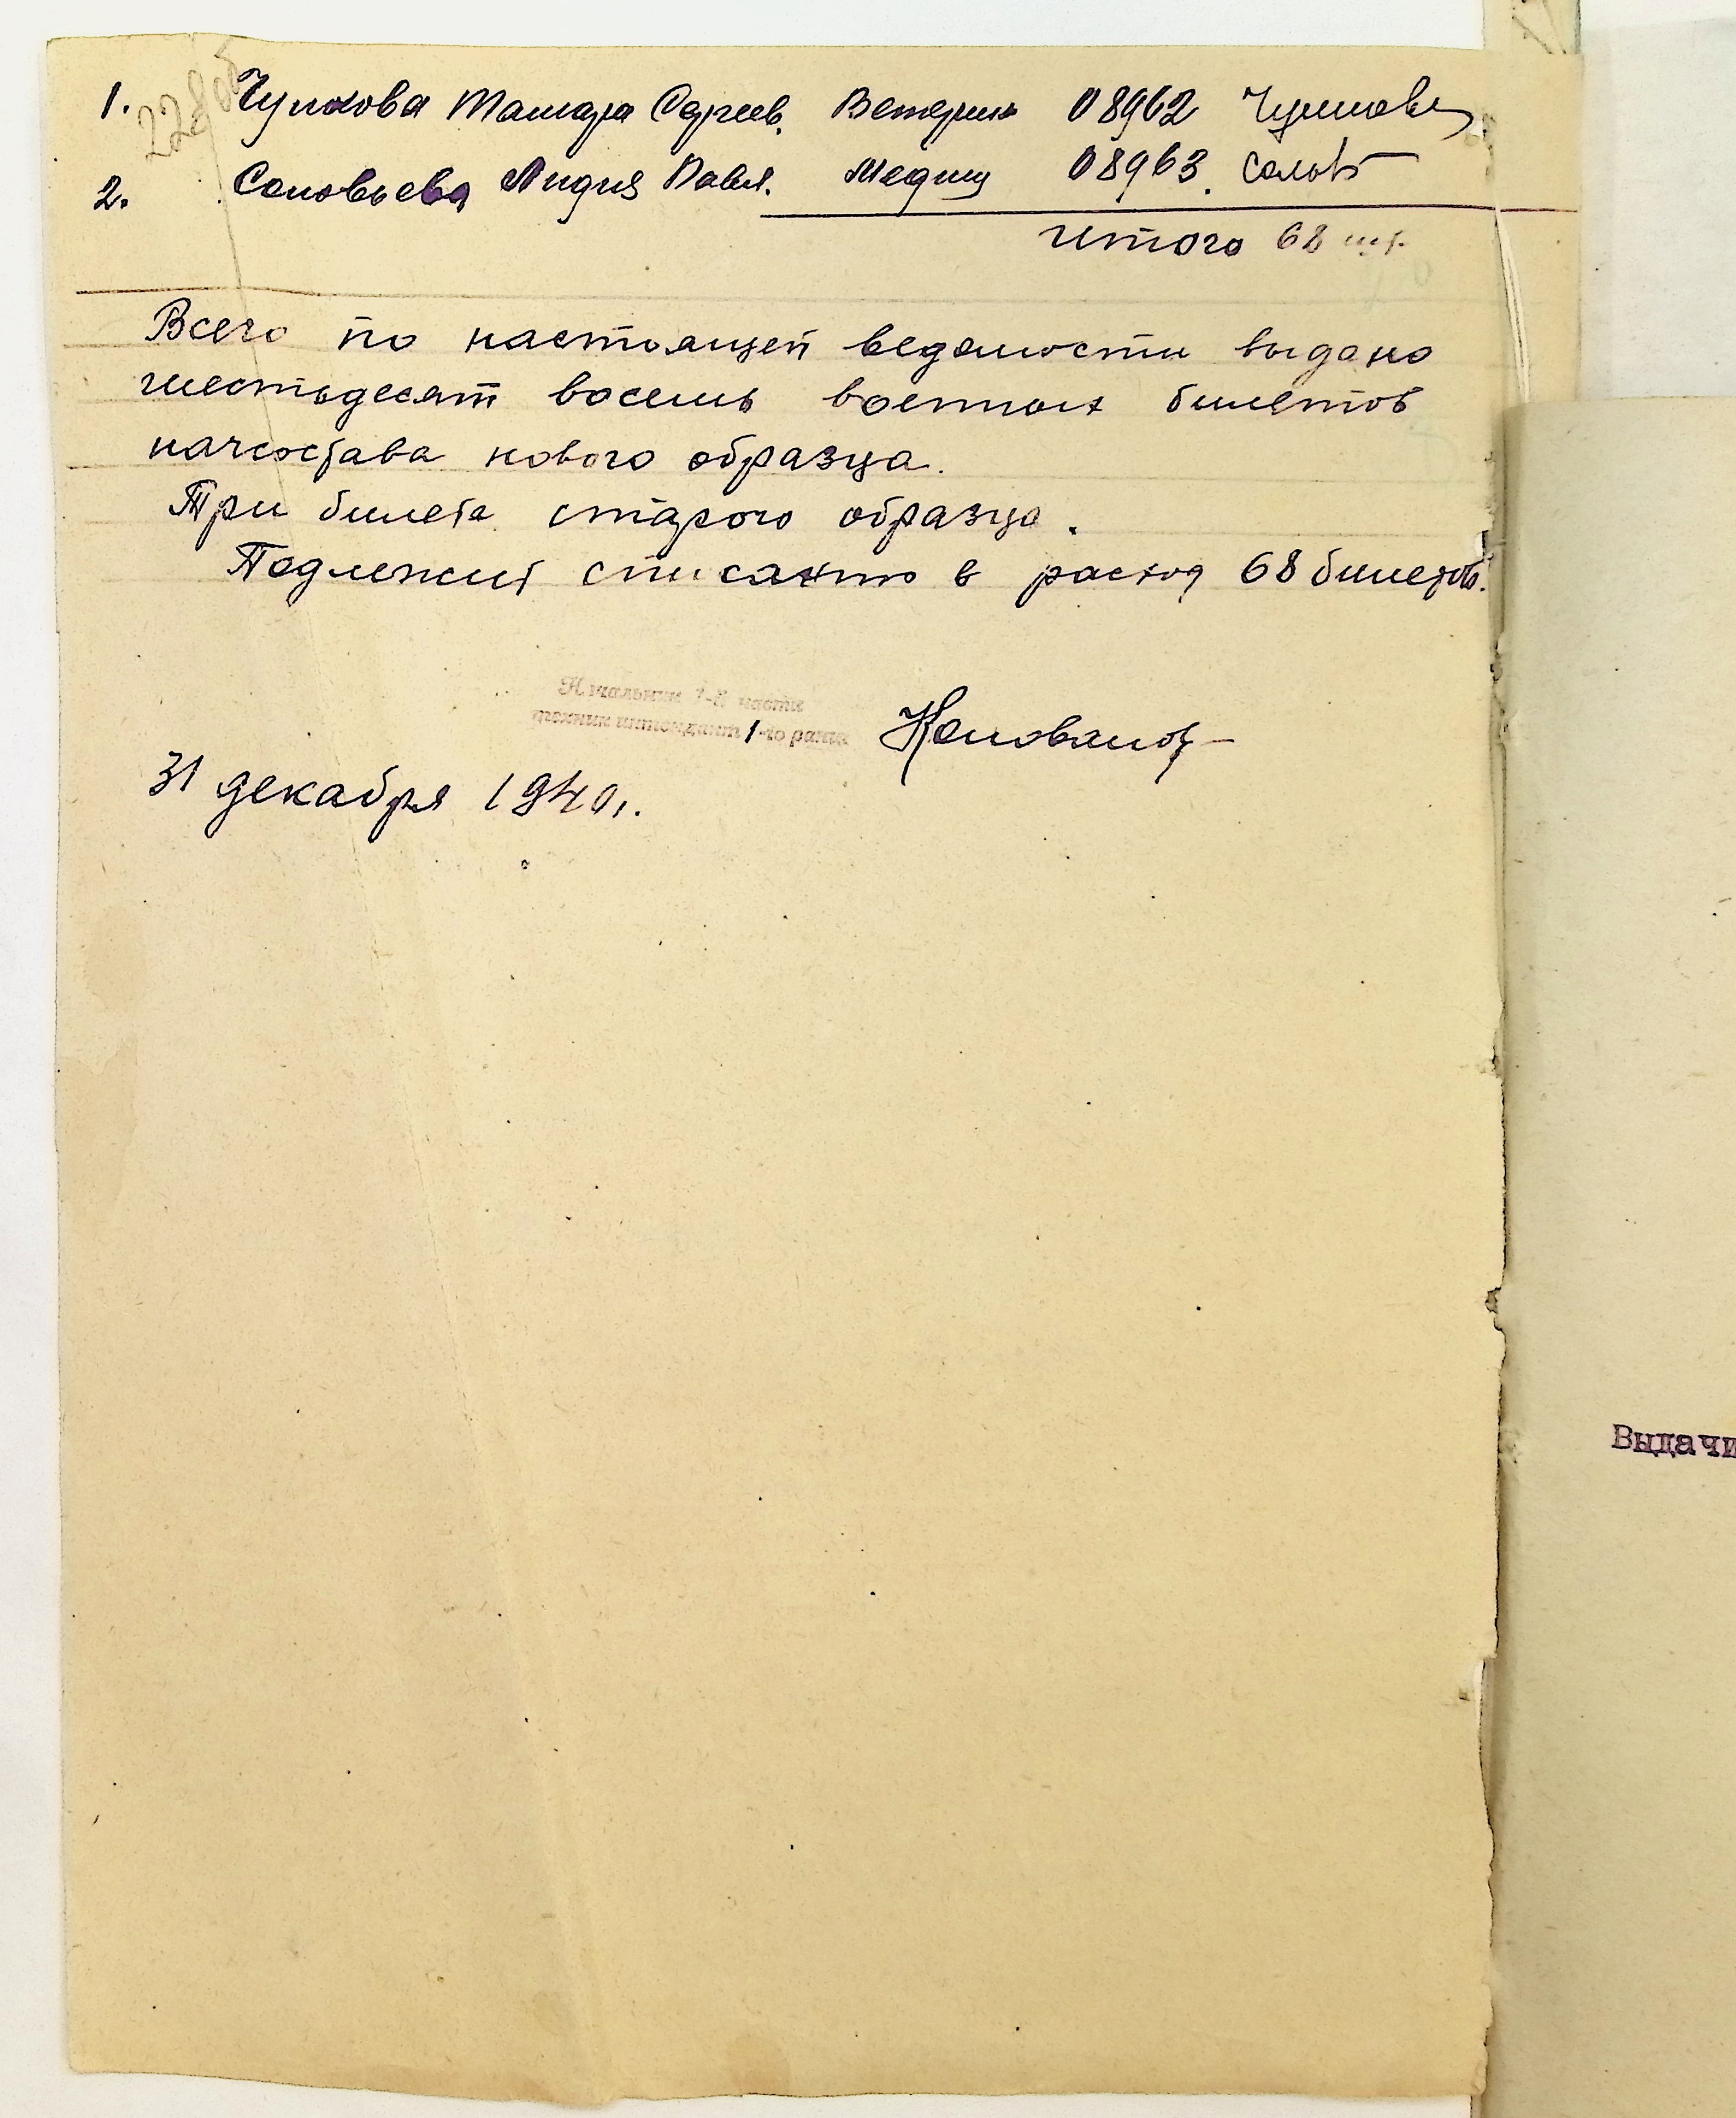 228об
1. Чулкова Тамара Сергеев. Ветерин 08962 Чулкова
2. Соловьева Лидия Павл. Медиц 08963. Солов
Итого 68 шт.
Всего по настоящей ведомости выдано
шестьдесят восемь военных билетов
начсостава нового образца.
Три билета старого образца.
Подлежит списанию в расход 68 билетов.
Начальник 1-й части
техник интендант 1-го ранга
31 декабря 1940г.
Выдачи